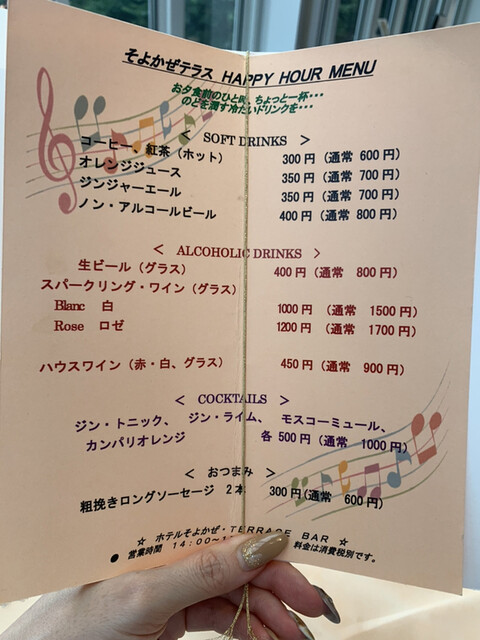 そよかぜテラス HAPPY HOUR MENU
お夕食前のひと時、ちょっと一杯・・・
のどを潤す冷たいドリンクを・・・
< SOFT DRINKS >
コーヒー、紅茶（ホット） 300円（通常 600円）
オレンジジュース 350円（通常 700円）
ジンジャーエール 350円（通常 700円）
ノン・アルコールビール 400円（通常 800円）
< ALCOHOLIC DRINKS >
生ビール（グラス） 400円（通常 800円）
スパークリング・ワイン（グラス）
Blanc 白 1000円（通常 1500円）
Rose ロゼ 1200円（通常 1700円）
ハウスワイン（赤・白、グラス） 450円（通常 900円）
< COCKTAILS >
ジン・トニック、 ジン・ライム、 モスコーミュール、
カンパリオレンジ 各 500円（通常 1000円）
< おつまみ >
粗挽きロングソーセージ 2本 300円(通常 600円)
☆ ホテルそよかぜ・TERRACE BAR ☆
● 営業時間 14:00～ 料金は消費税別です。